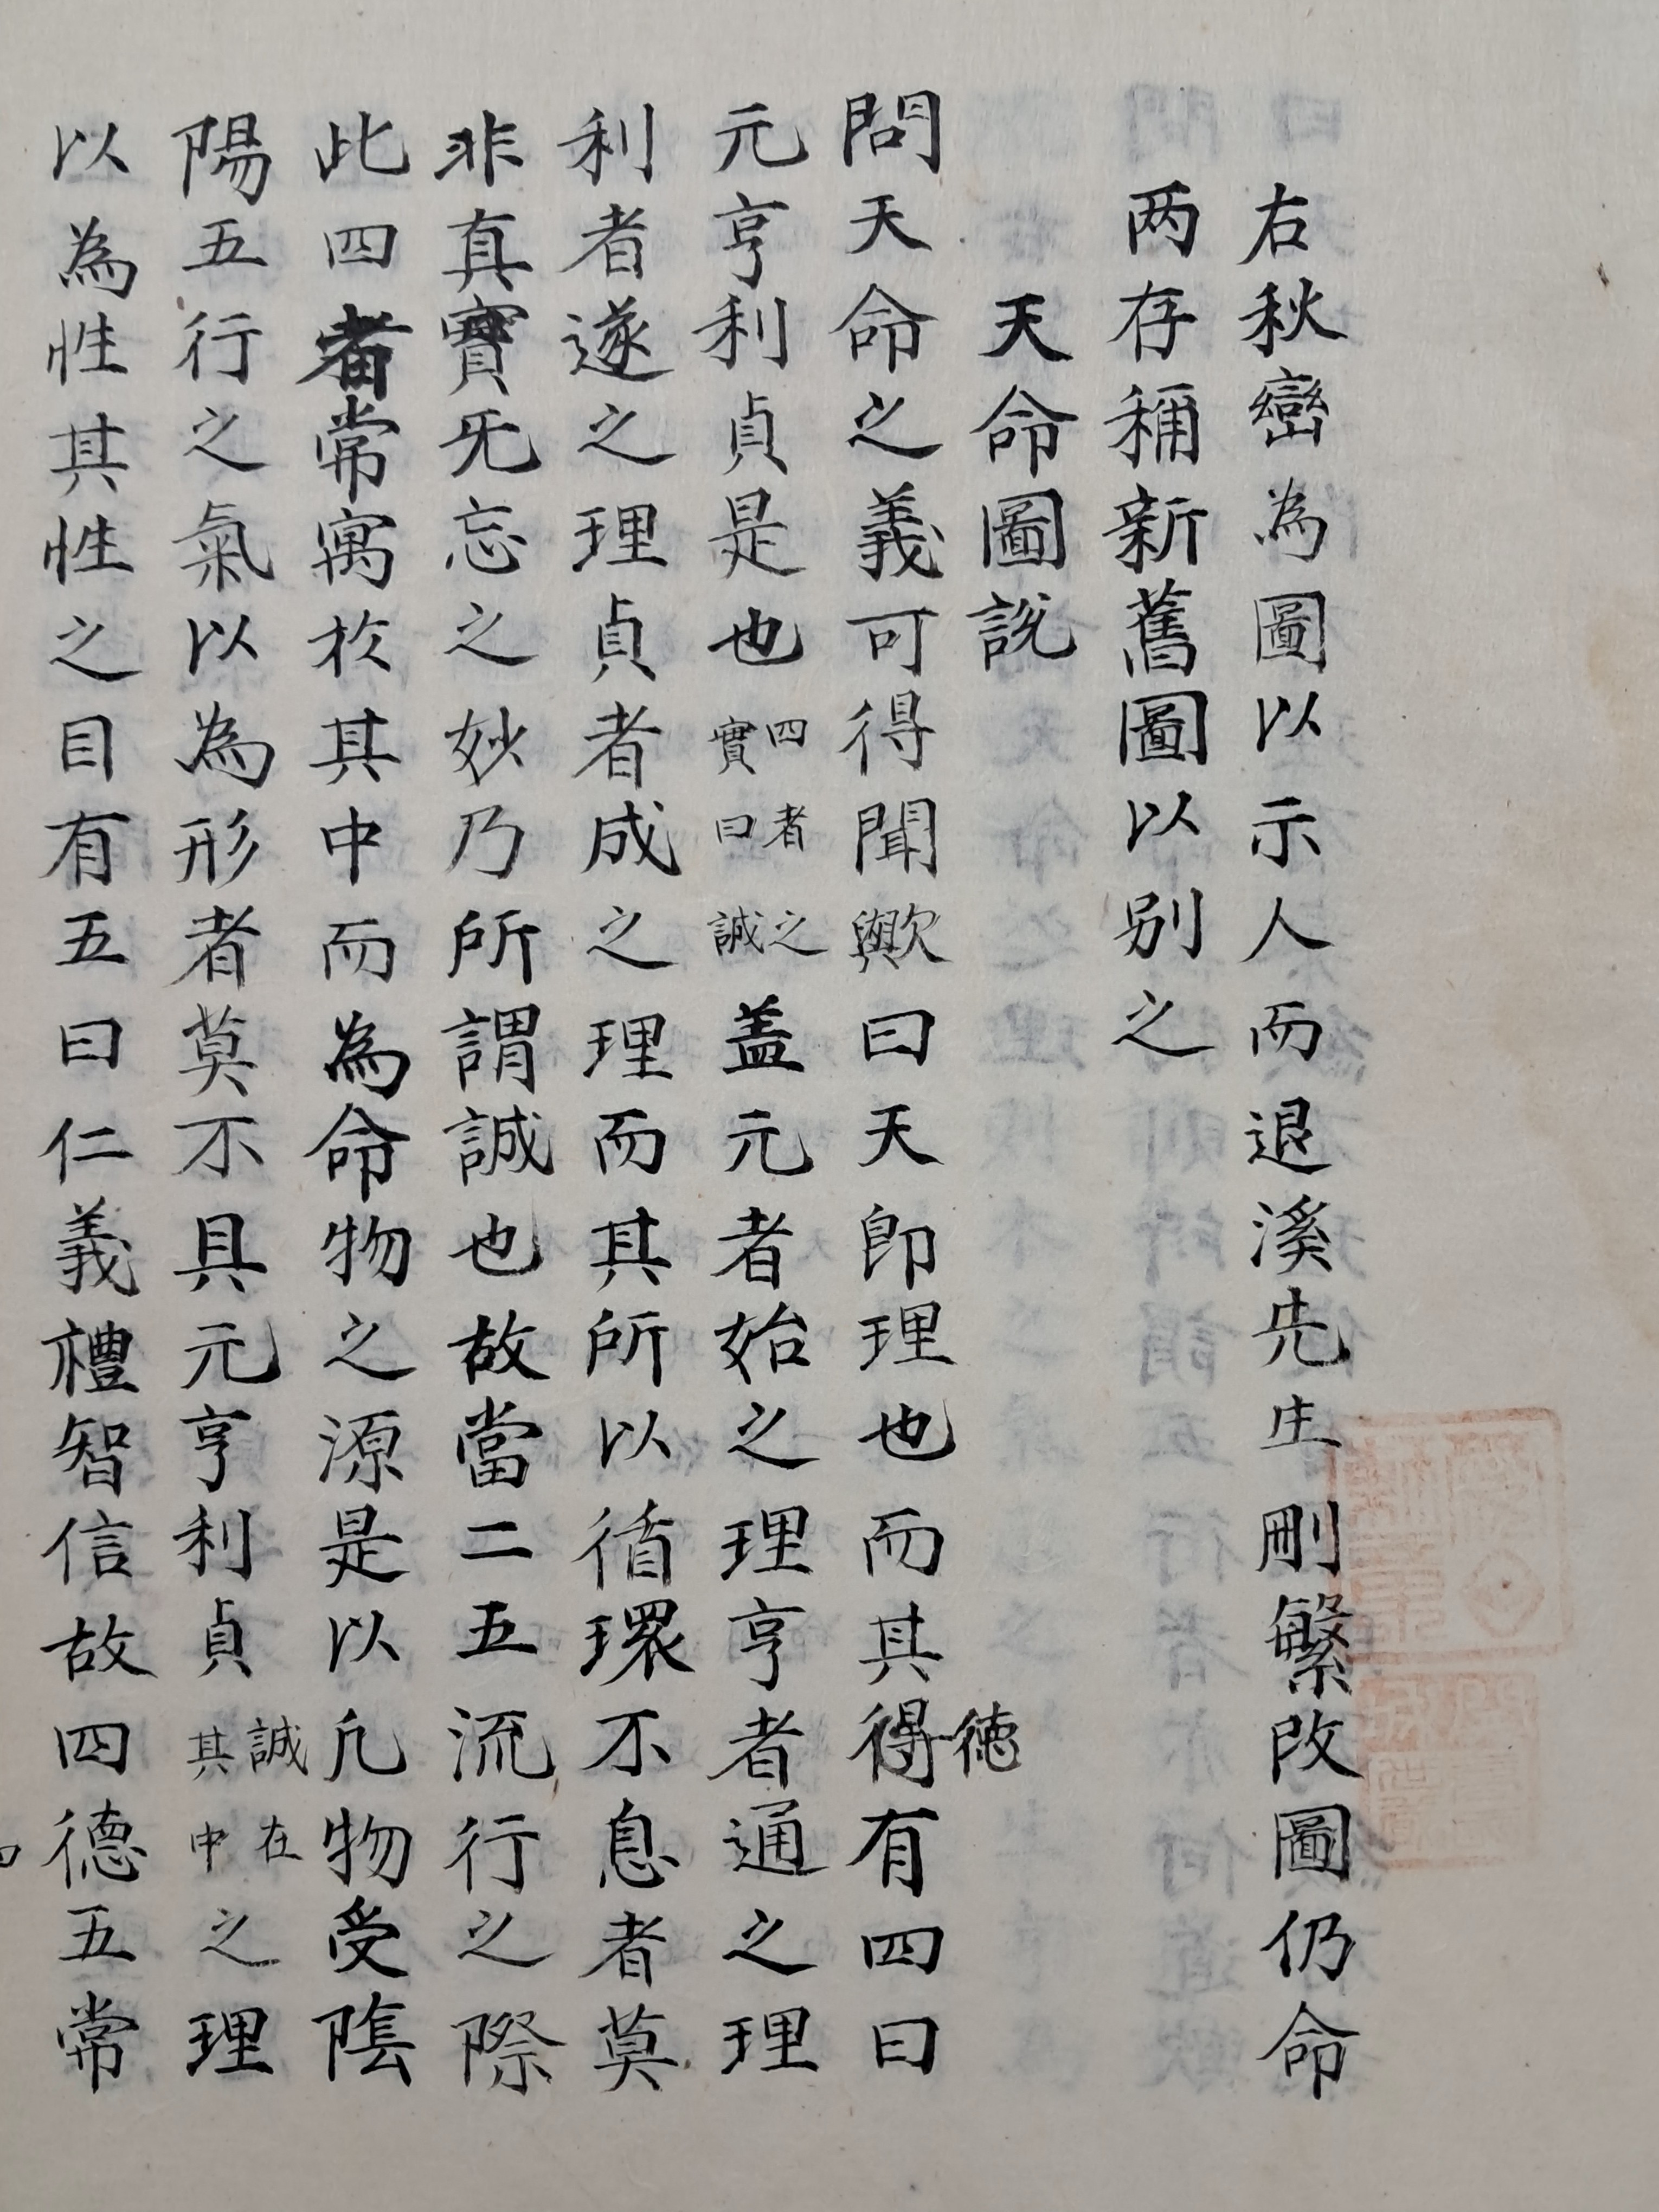 右秋巒為圖以示人而退溪先生刪繁改圖仍命
两存稱新舊圖以别之
天命圖說
問天命之義可得聞歟曰天即理也而其得有四曰
徳
元亨利貞是也四者之實曰誠盖元者始之理亨者通之理
利者遂之理貞者成之理而其所以循環不息者莫
非真實旡忘之妙乃所謂誠也故當二五流行之際
此四者常寓於其中而為命物之源是以凡物受陰
陽五行之氣以為形者莫不具元亨利貞誠在其中之理
以為性其性之目有五曰仁義禮智信故四德五常